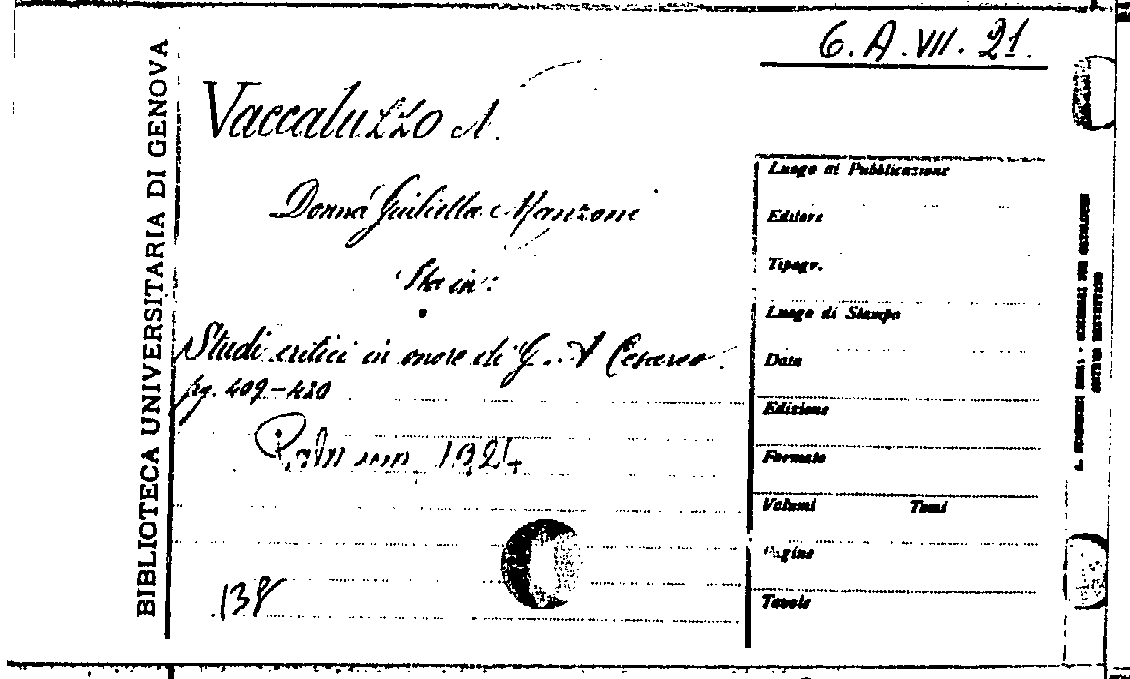 6. A. VII. 21.
BIBLIOTECA UNIVERSITARIA DI GENOVA
Vaccaluzzo N.
Donna Giulietta Manzoni
Sta in:
Studi critici in onore di G. A Cesareo.
pg. 409-430
Palermo, 1924
138
Luogo di Pubblicazione
Editore
Tipogr.
Luogo di Stampa
Data
Edizione
Formato
Volumi Tomi
Pagine
Tavole